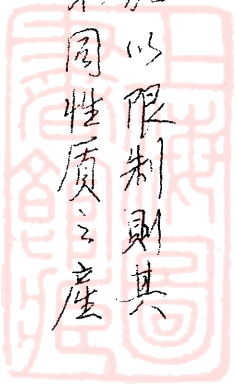 以限制則其
同性质之產